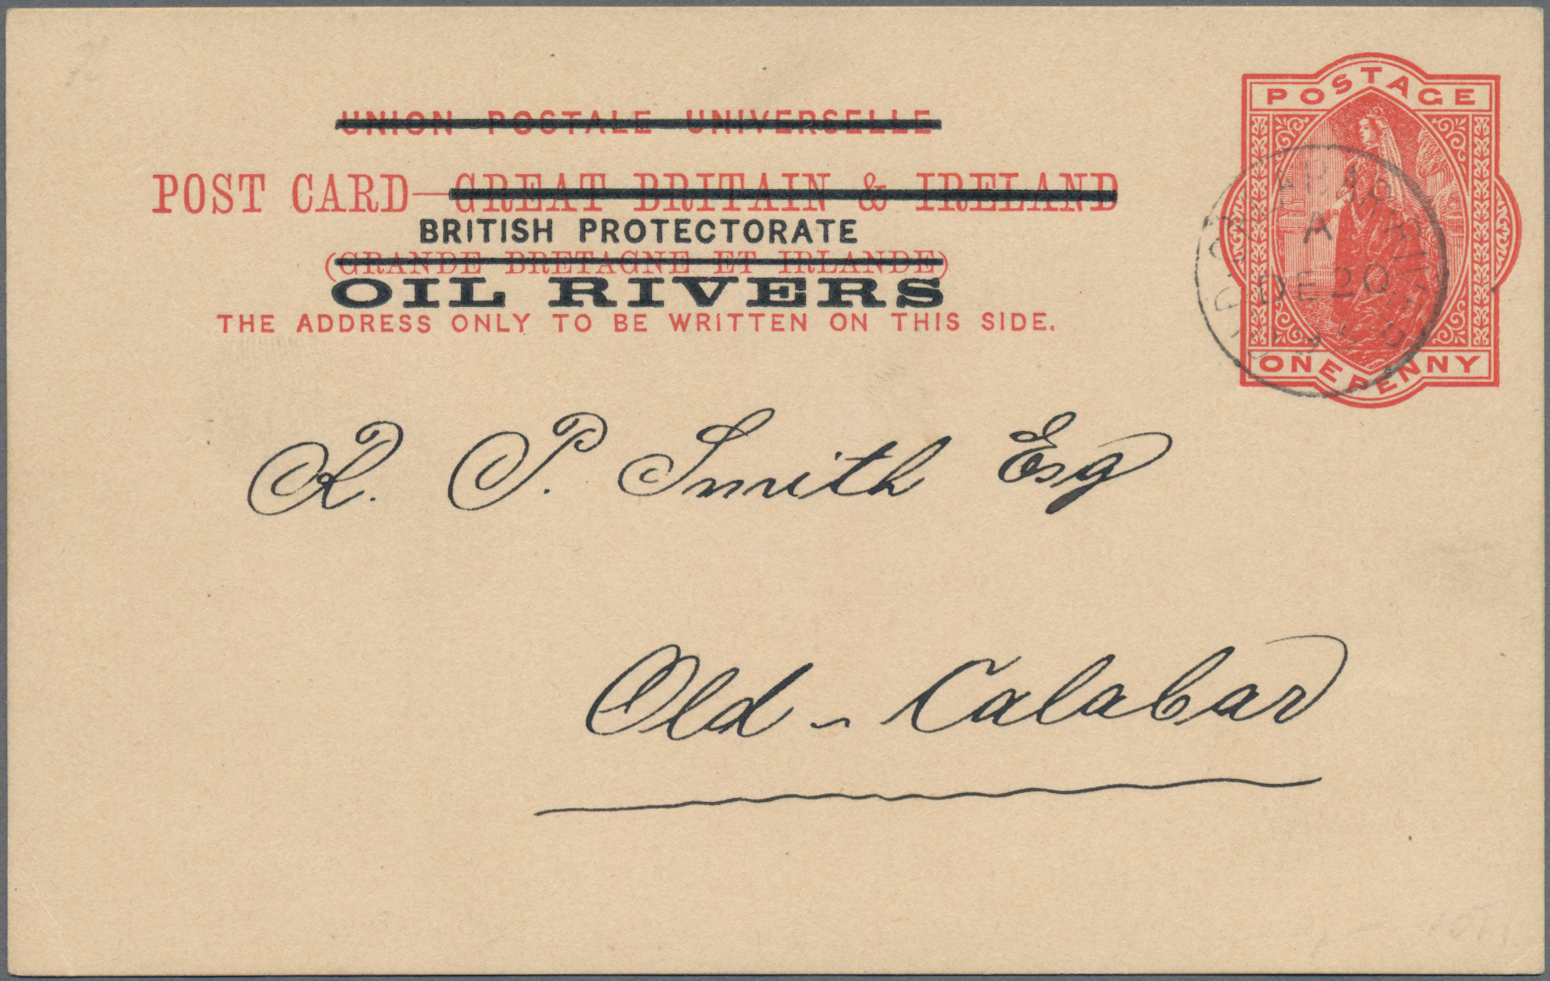 UNION POSTALE UNIVERSELLE
POST CARD—GREAT BRITAIN & IRELAND
BRITISH PROTECTORATE
(GRANDE BRETAGNE ET IRLANDE)
OIL RIVERS
THE ADDRESS ONLY TO BE WRITTEN ON THIS SIDE.
POSTAGE
ONE PENNY
A
DE 20
R. P. Smith Esq
Old - Calabar